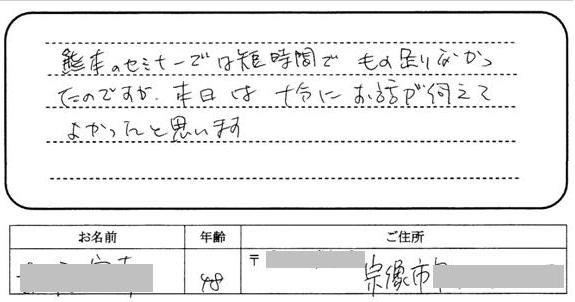 熊本のセミナーでは短時間で もの足りなかっ
たのですが、本日は 十分に お話が伺えて
よかったと思います
お名前 年齢 ご住所
48 〒 宗像市